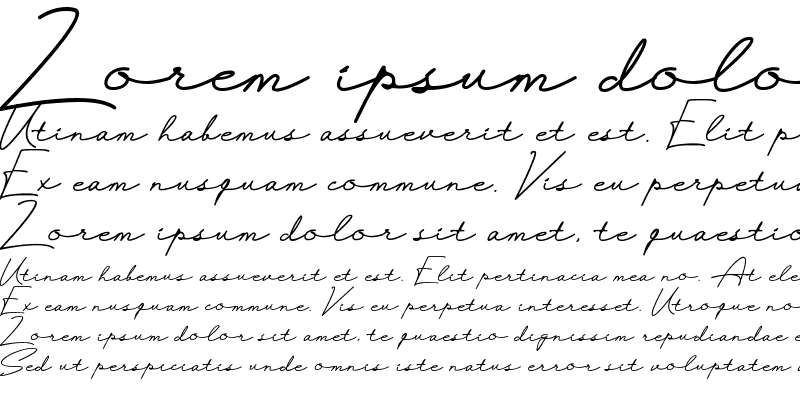 Lorem ipsum dolo
Utinam habemus assueverit et est. Elit p
Ex eam nusquam commune. Vis eu perpetu
Lorem ipsum dolor sit amet, te quaestio
Utinam habemus assueverit et est. Elit pertinacia mea no. At ele
Ex eam nusquam commune. Vis eu perpetua interesset. Utroque no
Lorem ipsum dolor sit amet, te quaestio dignissim repudiandae e
Sed ut perspiciatis unde omnis iste natus error sit voluptatem